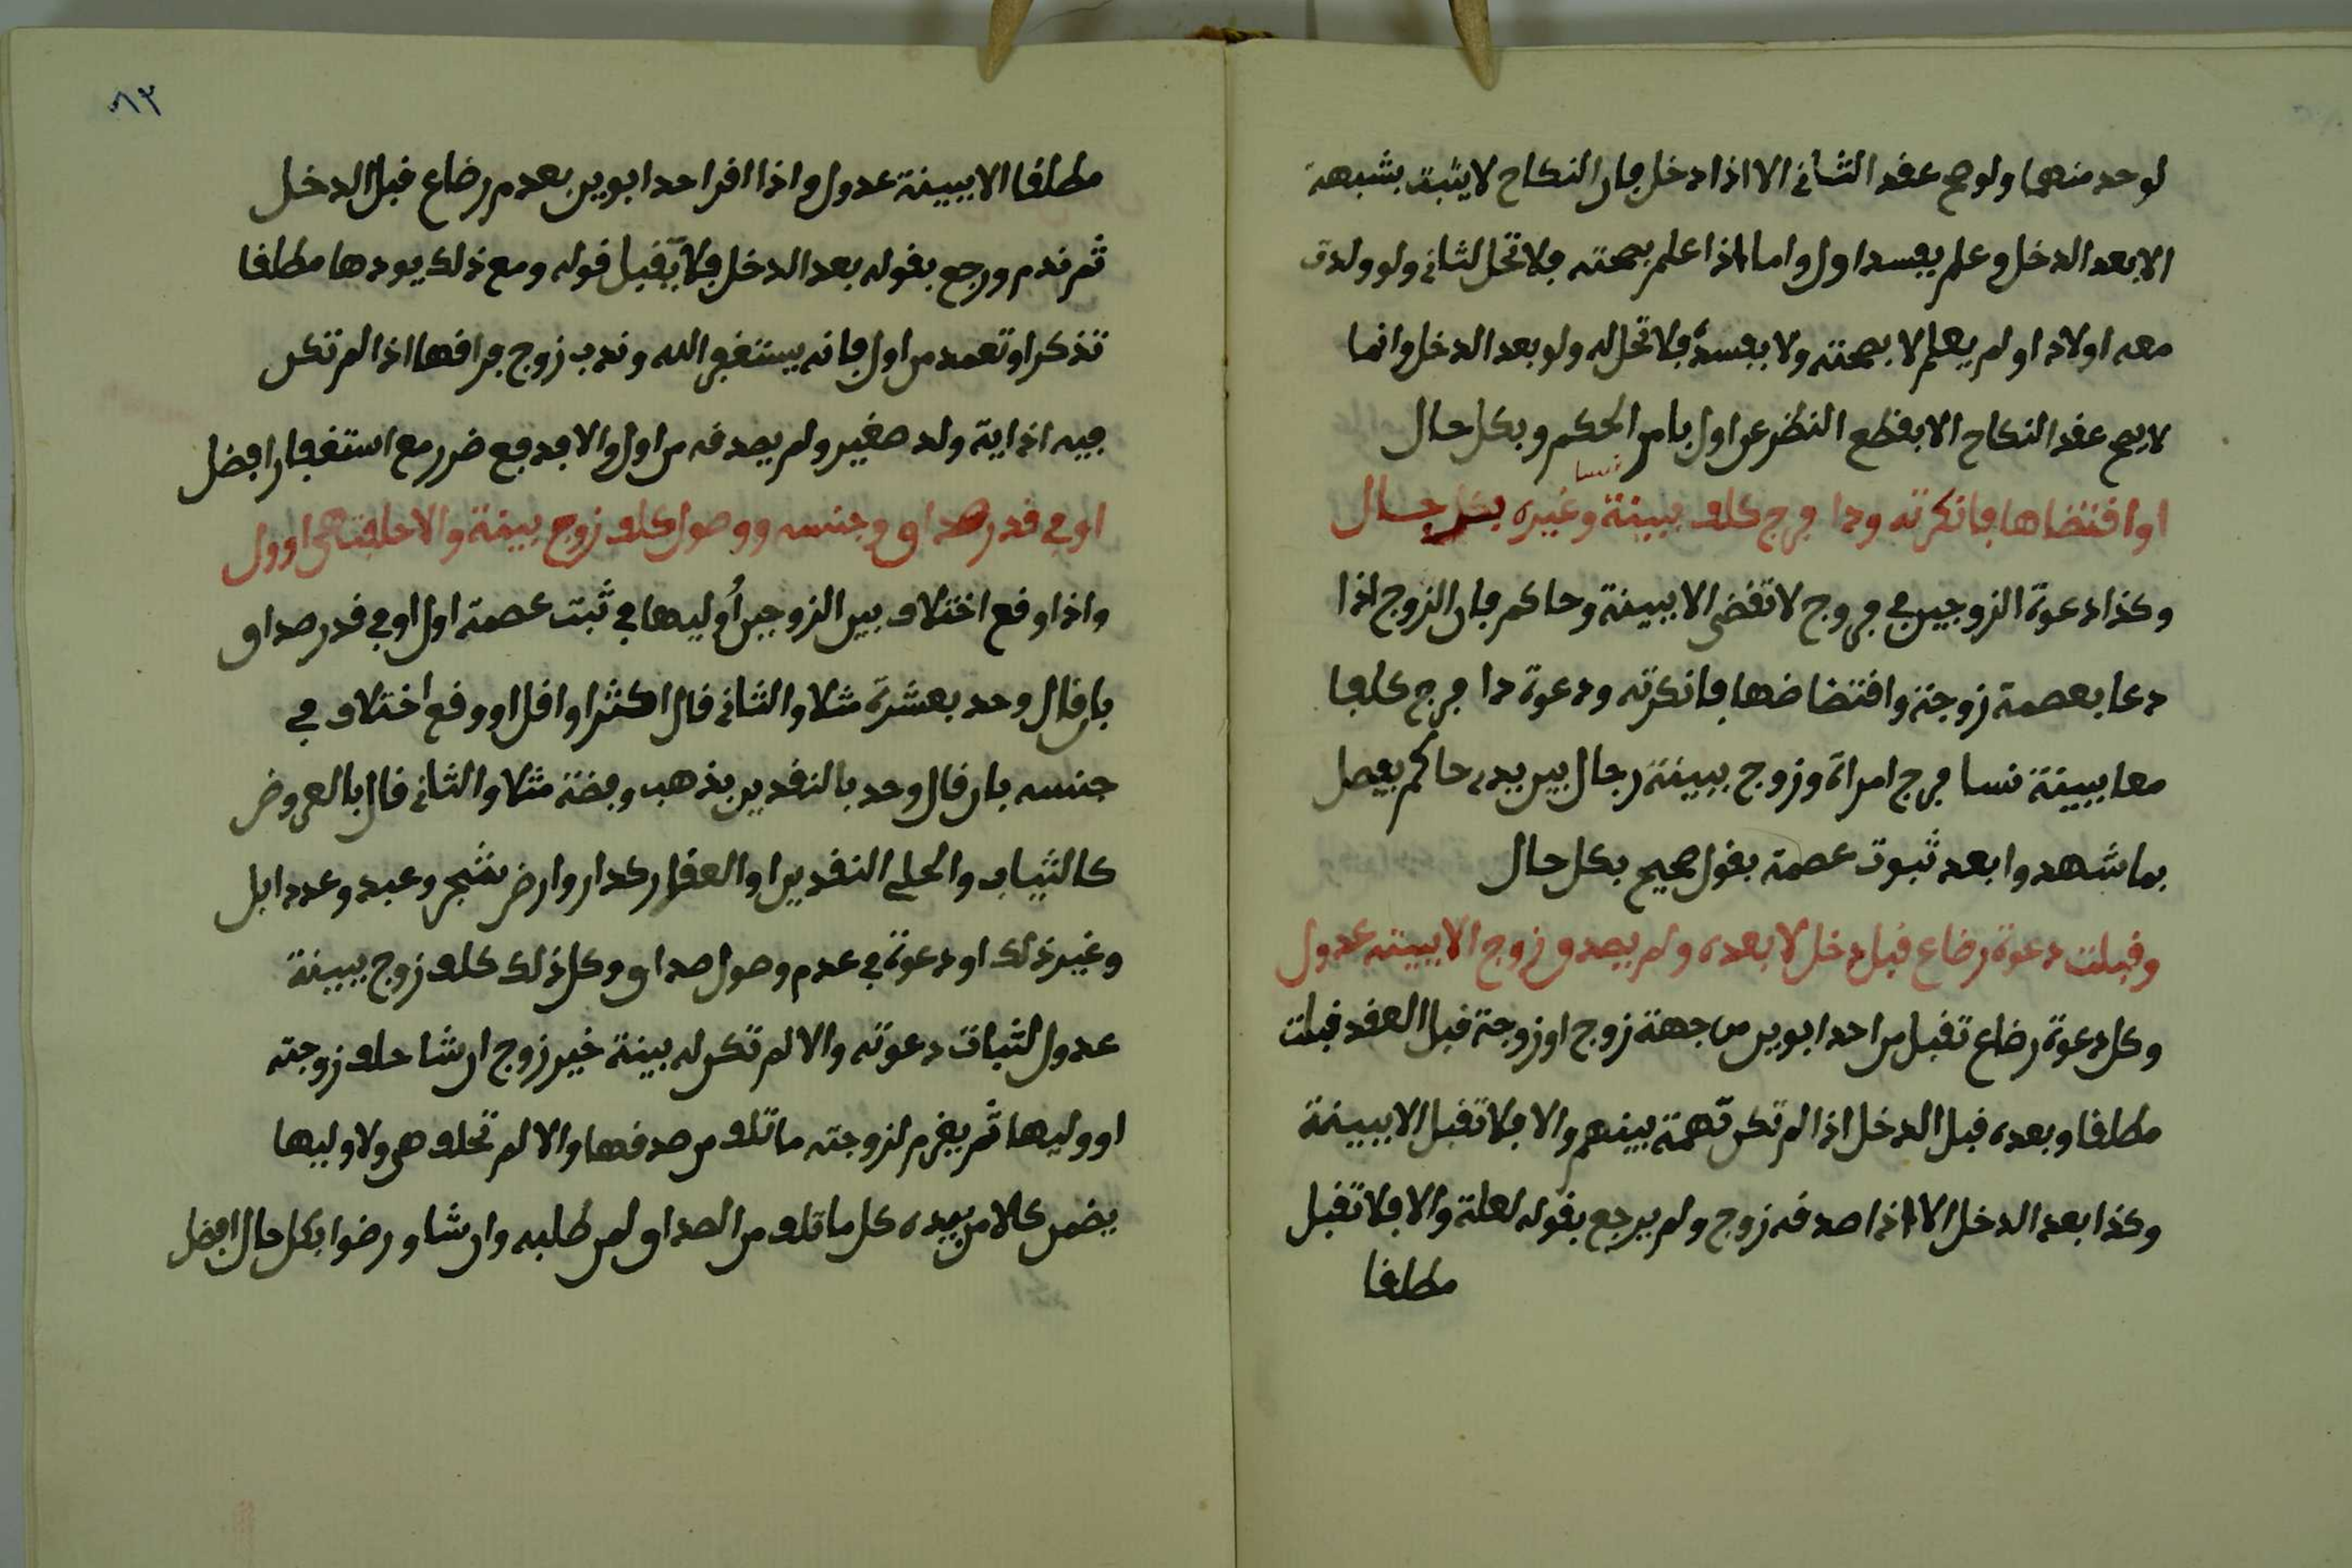 لوحد منهما ولو صح عقد الثاني الا اذا دخل فان النكاح لا يثبت بشبهة
الا بعد الدخل وعلم بفسد اول واما اذا علم بصحته فلا تحل لثاني ولو ولدت
معه اولاد او لم يعلم لا بصحته ولا بفسده فلا تحل له ولو بعد الدخل وانما
لا يصح عقد النكاح الا بقطع النظر عن اول بامر الحكم وبكل حال
نسا
او افتضاها فانكرته وداء فرج كلف ببينة وغيره بكل حال
وكذا دعوة الزوجين في فروج لا تقضى الا ببينة وحاكم فان الزوج اذا
دعا بعصمة زوجته وافتضاضها فانكرته ودعوة داء فرج كلفا
معا ببينة نسا فرج امراة وزوج ببينة رجال بين يدي حاكم يفصل
بما شهدوا بعد ثبوت عصمة بقول صحيح بكل حال
وقبلت دعوة رضاع قبل دخل لا بعده ولم يصدق زوج الا ببينة عدول
وكل دعوة رضاع تقبل من احد ابوين من جهة زوج او زوجة قبل العقد قبلت
مطلقا وبعده قبل الدخل اذا لم تكن تهمة بينهم والا فلا تقبل الا ببينة
وكذا بعد الدخل الا اذا صدقه زوج ولم يرجع بقوله لعلة والا فلا تقبل
مطلقا
٨٣
مطلقا الا ببينة عدول واذا اقر احد ابوين بعدم رضاع قبل الدخل
ثم ندم ورجع بقوله بعد الدخل فلا يقبل قوله ومع ذلك يودها مطلقا
تذكر او تعمد من اول فانه يستغفر الله وندب زوج فراقها اذا لم تكن
فيه اذاية ولد صغير ولم يصدقه من اول والا فدفع ضرر مع استغفار افضل
او في قدر صداق وجنسه ووصول كلف زوج ببينة والا حلفت هي اوول
واذا وقع اختلاف بين الزوجين أوليها في ثبت عصمة اول او في قدر صداق
بان قال وحد بعشرة مثلا والثاني قال اكثر او اقل او وقع اختلاف في
جنسه بان قال وحد بالنقدين بذهب وفضة مثلا والثاني قال بالعروض
كالثياب والحلي النقدين او العقار كدار وارض بشجر وعبد وعدد ابل
وغير ذلك او دعوة في عدم وصول صداق وكل ذلك كلف زوج ببينة
عدول لثبات دعوته والا لم تكن له بينة خير زوج ان شا حلف زوجته
او وليها ثم يغرم لزوجته ما تلف من صدقها والا لم تحلف هي ولا وليها
يضمن كلا من بيده كل ما تلف من الصداق لمن طلبه وان شاو رضوا بكل حال افضل